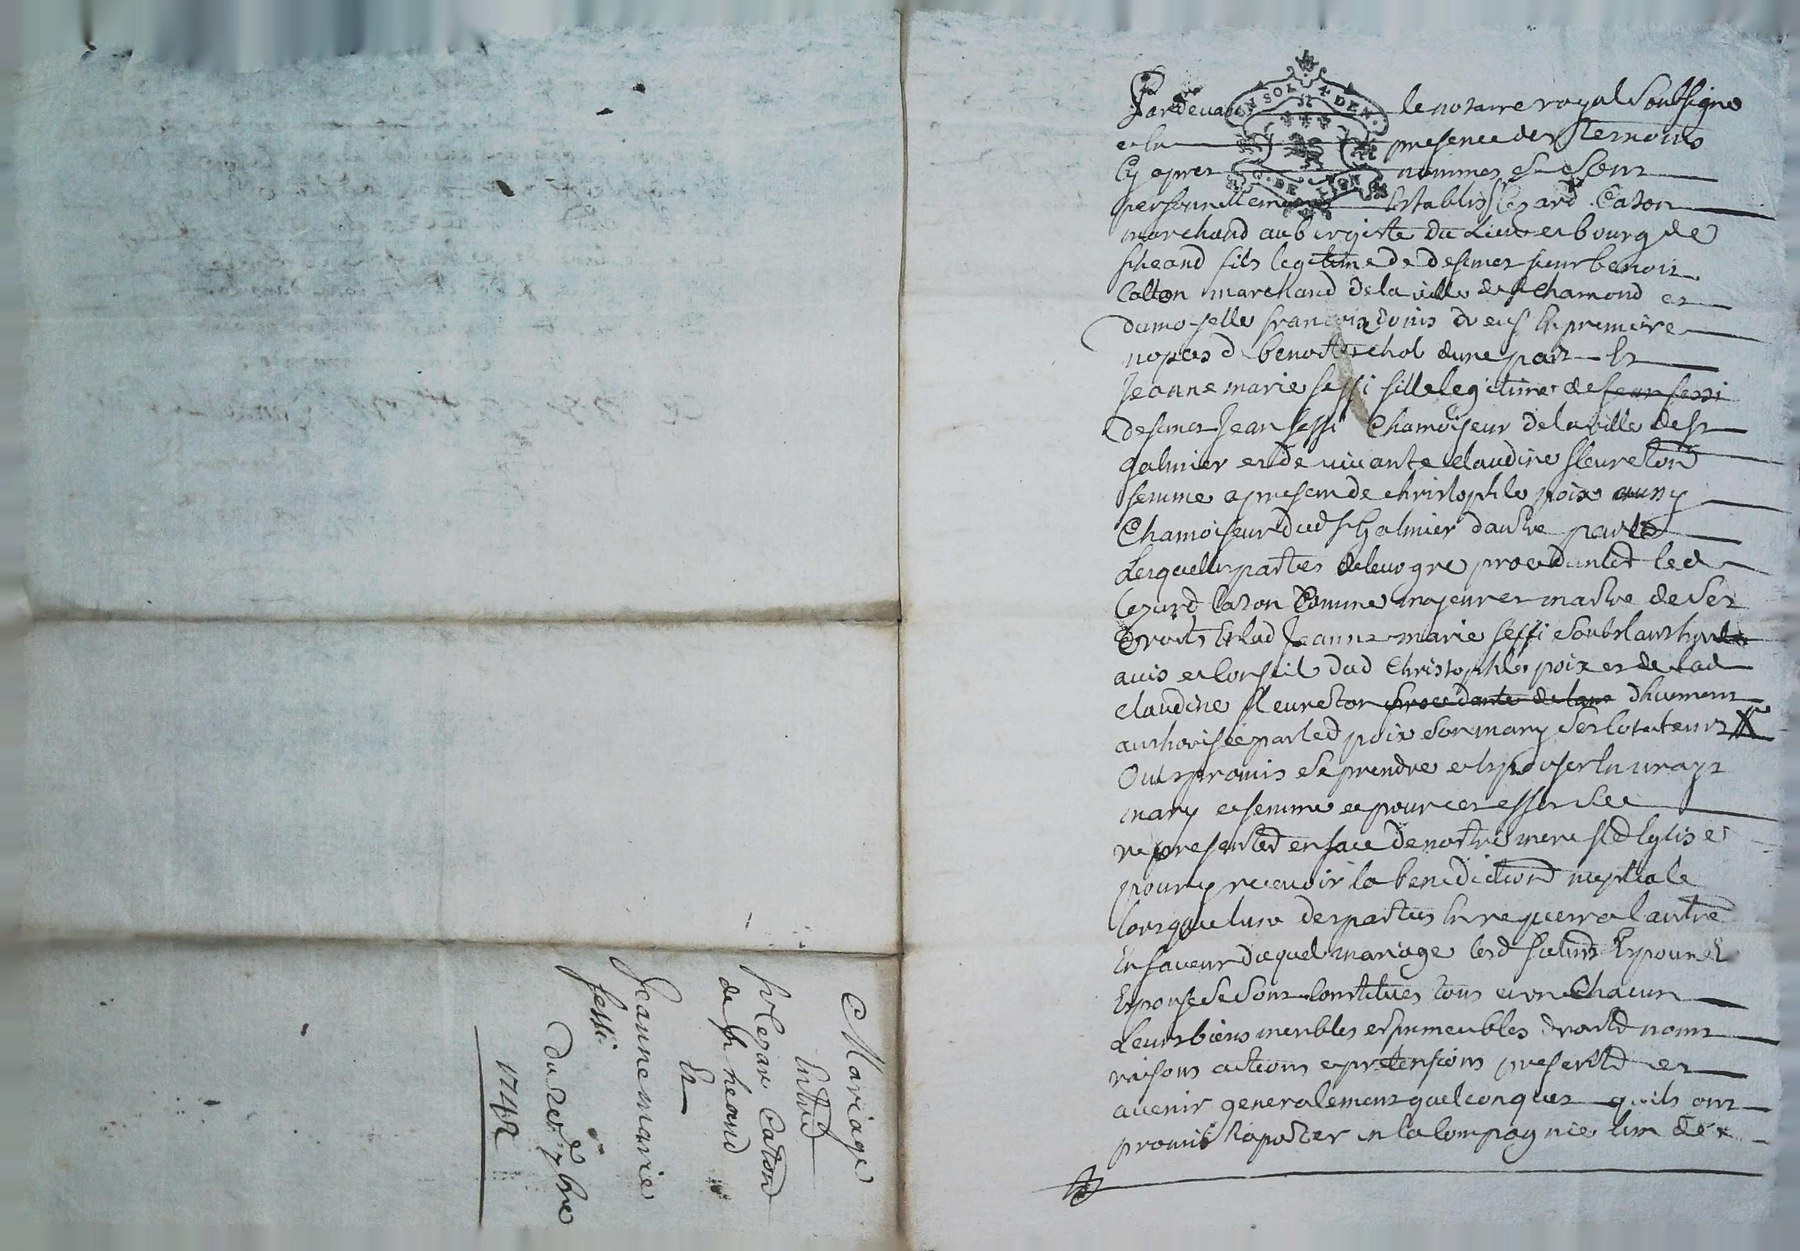 Mariage
Entre
sr Cezar Caton
de st heand
Et
Jeanne marie
sessi
Du 20e 7bre
1748
UN SOL 4 DEN.
G. DE LYON
Pardevant le notaire royal soubsigne
et en presence des temoins
cy apres nommes se sont
personnellement Establis Cezard Caton
marchand aubergiste du Lieu et bourg de
st heand fils legitime de defunct sieur benoit
Catton marchand de la ville de st Chamond et
damoiselle francoise
nopces d benoit chol dune part Et
Jeanne marie sessi fille legitime de jean sessi
defunct Jean sessi Chamoiseur de la ville de st
galmier et de vivante claudine fleureton
femme a present de christophle poix aussy
Chamoiseur dud st Galmier dautre parte
Lesquelles parties de leur gre procedantes led
Cezard Caton Comme majeur et maitre de ses
Droits Et lad Jeanne marie sessi soubs lauthorite
avis et conseil dud Christophle poix et de lad
claudine fleureton procedante de lauc dhuement
authorisée par led poix son mary
Ont promis se prendre et Epouser En vrays
mary et femme et pour cet effet se
representer en face de notre mere ste Eglise
pour y recevoir la benediction nuptiale
lorsque lune des parties En requerra lautre
En faveur duquel mariage lesd futurs Epoux Et
Epouse se sont Constitués tous et un Chacun
Leurs biens meubles et Immeubles droits noms
raisons actions et pretensions presents et
avenir generalement quelconques quils ont
promis raporter en la Compagnie lun de